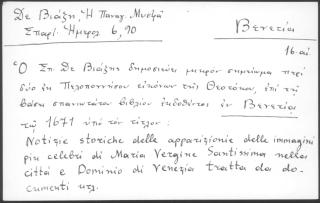 Δε Βιάζη, Ἡ Παναγ. Μυστρᾶ
Ἑσπερ. Ἡμερος 6, 90
Βενετία
16 αἰ
Ὁ Σπ Δε Βιάζης δημοσιεύει μικρὸν σημείωμα περὶ
δύο ἐκ Πελοποννήσου εἰκόνων τῆς Θεοτόκου, ἐπὶ τῇ
βάσει σπανιωτάτου βιβλίου ἐκδοθέντος ἐν Βενετίᾳ
τῷ 1671 ὑπὸ τὸν τίτλον:
Notizie storiche delle apparizionie delle immagini
piu celebri di Maria Vergine Santissima nella
città e Dominio di Venezia tratta da do-
cumenti κτλ.